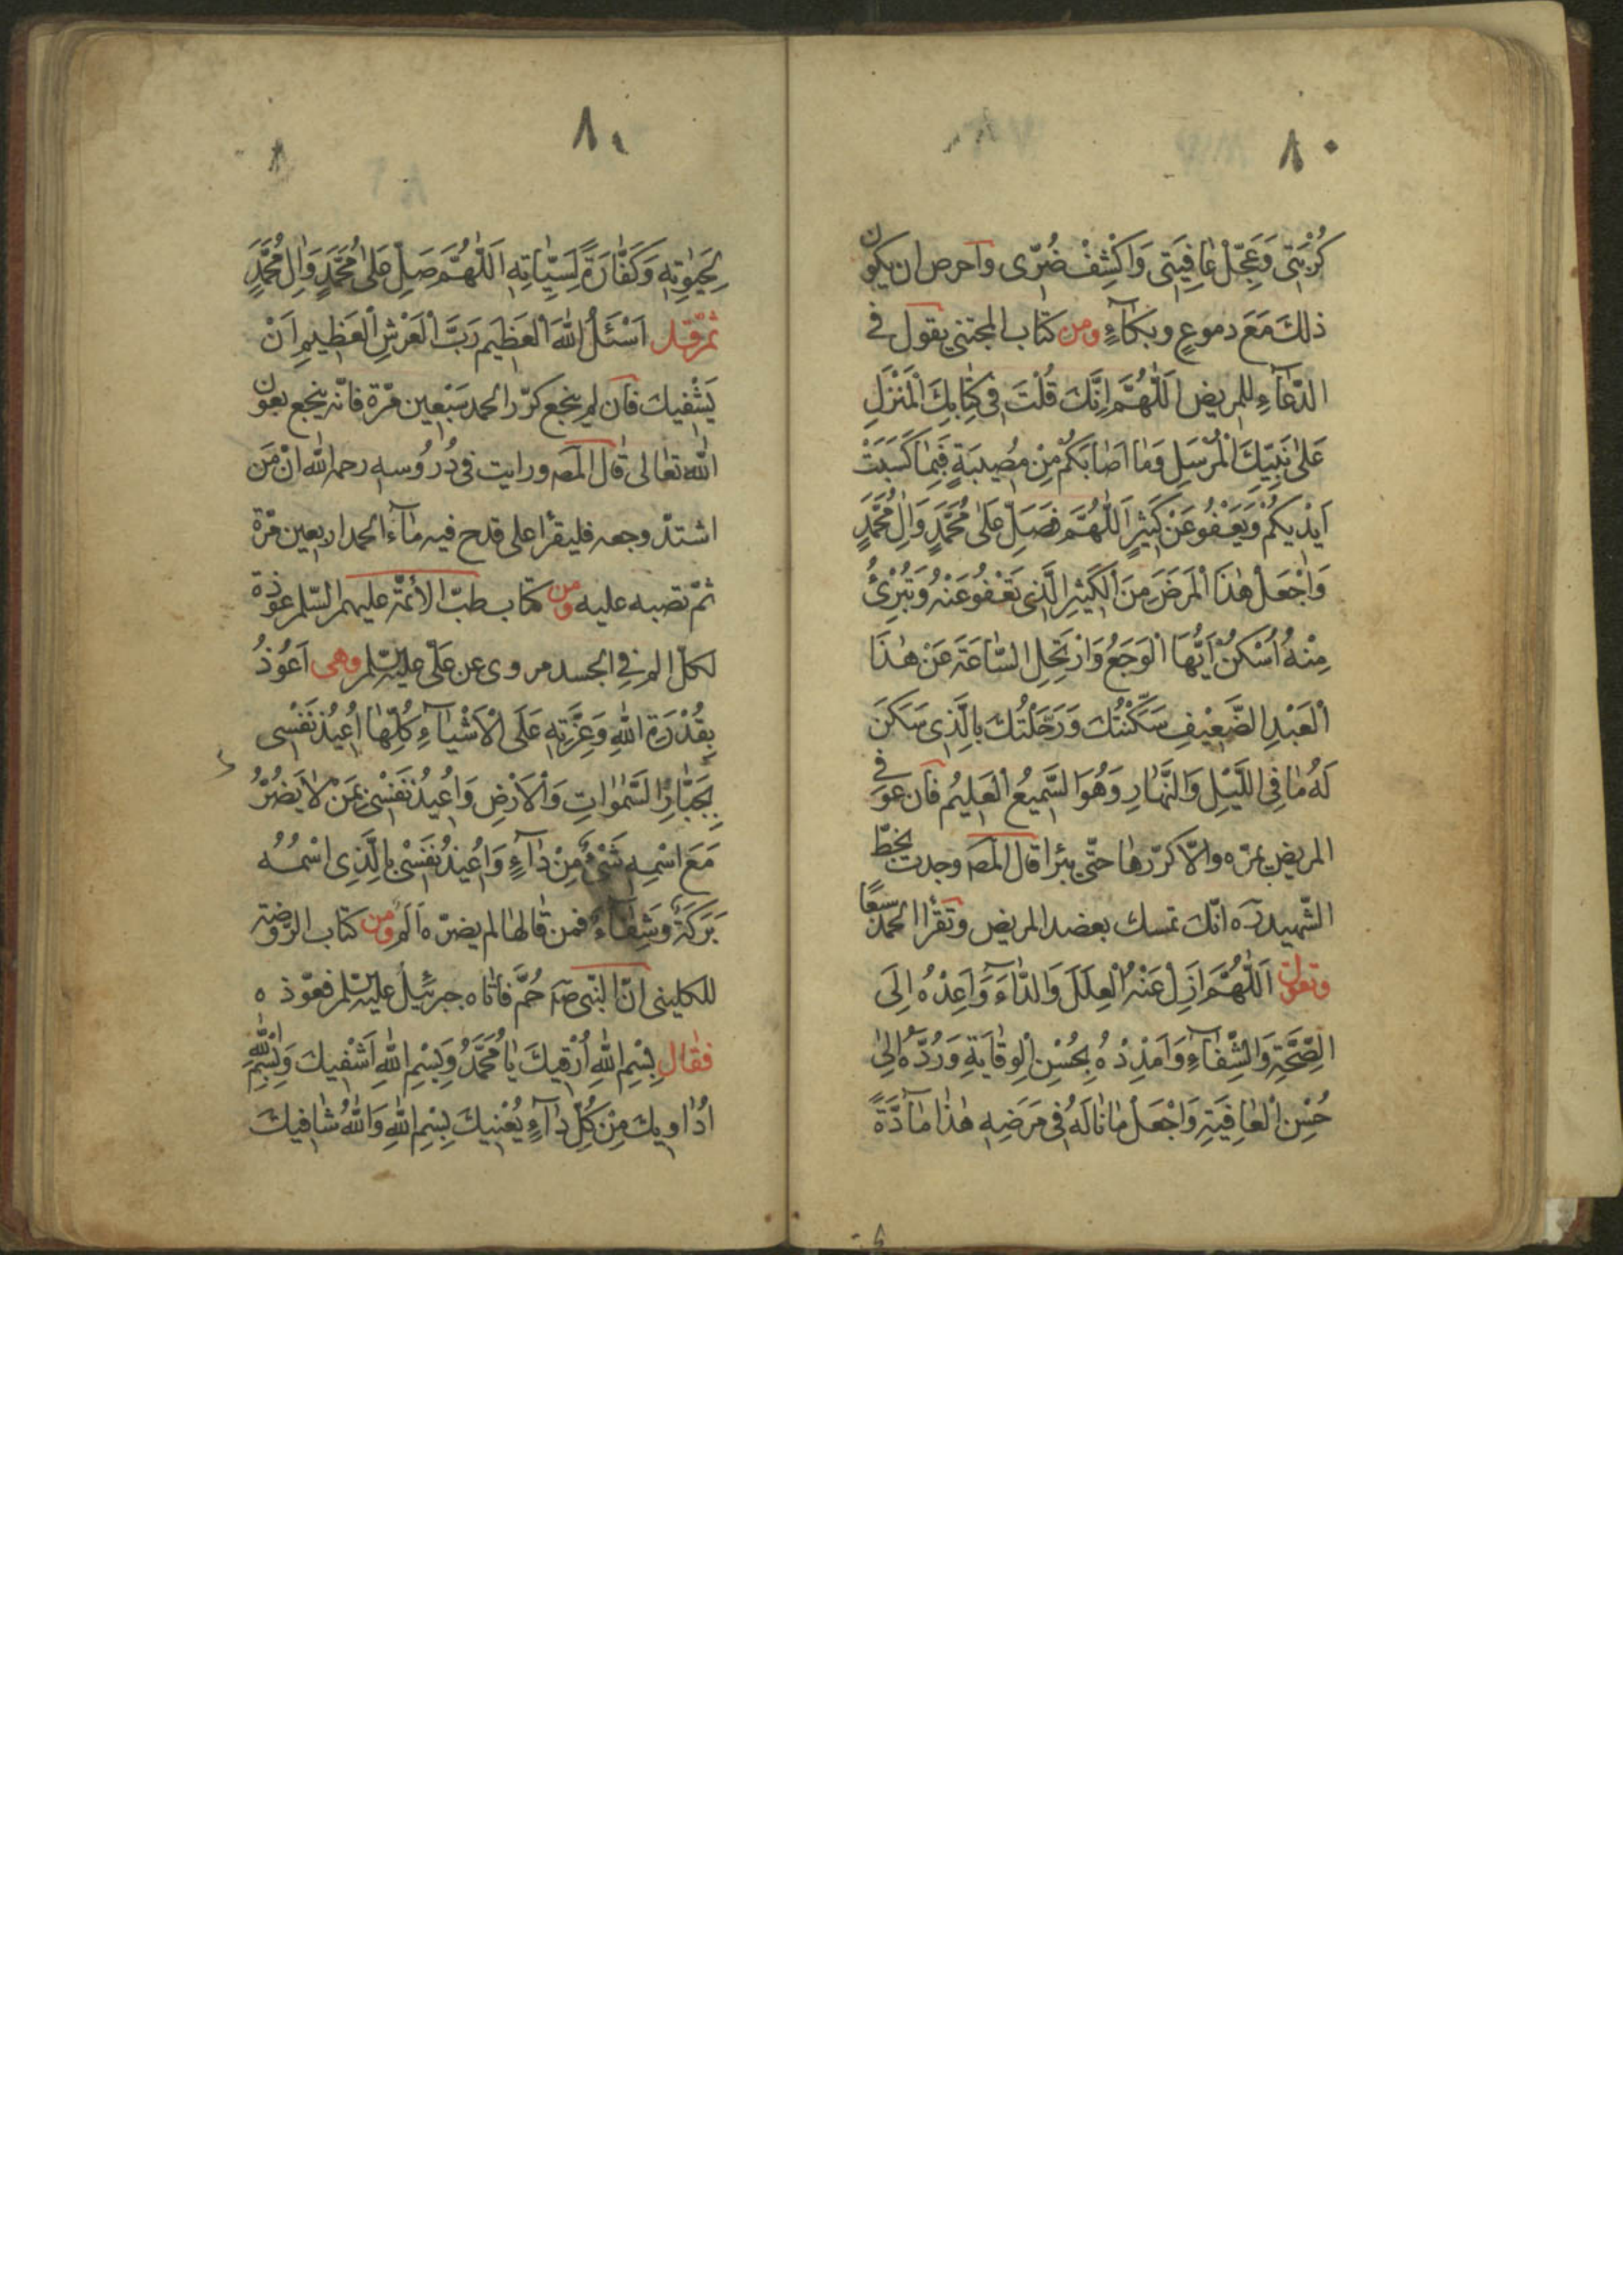 ٨٠
كُرْبَتِى وَعَجِّلْ عٰافِيَتِى وَاكْشِفْ ضُرِّى واحرص ان يكون
ذلك مَعَ دموعٍ وبكآءٍ ومن كتاب المجتنى يقول في
الدّعآءِ للمريض اَللّٰهُمَّ اِنَّكَ قُلْتَ فِى كِتٰابِكَ الْمُنْزَلِ
عَلىٰ نَبِيِّكَ الْمُرْسَلِ وَمٰا اَصٰابَكُمْ مِنْ مُصِيبَةٍ فَبِمٰا كَسَبَتْ
اَيْدِيكُمْ وَيَعْفُو عَنْ كَثِيرٍ اَللّٰهُمَّ فَصَلِّ عَلىٰ مُحَمَّدٍ وَاٰلِ مُحَمَّدٍ
وَاجْعَلْ هٰذَا الْمَرَضَ مِنَ الْكَثِيرِ الَّذِى تَعْفُو عَنْهُ وَتُبْرِئُ
مِنْهُ اُسْكُنْ اَيُّهَا الْوَجَعُ وَارْتَحِلِ السّٰاعَةَ عَنْ هٰذَا
الْعَبْدِ الضَّعِيْفِ سَكَّنْتُكَ وَرَحَّلْتُكَ بِالَّذِى سَكَنَ
لَهُ مٰا فِى اللَّيْلِ وَالنَّهٰارِ وَهُوَ السَّمِيعُ الْعَلِيمُ فان عوفى
المريض بمرّه والّا كرّرها حتّى يبرا قال المص وجدت بخطّ
الشّهيد ره انّك تمسك بعضد المريض وتقرأ الحمد سبعًا
وتقول اَللّٰهُمَّ اَزِلْ عَنْهُ الْعِلَلَ وَالدّٰاءَ وَاَعِدْهُ اِلَى
الصِّحَّةِ وَالشِّفٰآءِ وَاَمْدِدْهُ بِحُسْنِ الْوِقٰايَةِ وَرُدَّهُ اِلىٰ
حُسْنِ الْعٰافِيَةِ وَاجْعَلْ مٰا نٰالَهُ فِى مَرَضِهِ هٰذٰا مٰآدَّةً
٨١
لِحَيٰوتِهِ وَكَفّٰارَةً لِسَيِّئٰاتِهِ اَللّٰهُمَّ صَلِّ عَلىٰ مُحَمَّدٍ وَاٰلِ مُحَمَّدٍ
ثمّ قل اَسْئَلُ اللّٰهَ الْعَظِيمَ رَبَّ الْعَرْشِ الْعَظِيمِ اَنْ
يَشْفِيكَ فان لم ينجع كرّر الحمد سَبْعِين مرّة فانّه ينجع بعون
اللّٰه تعٰالى قال المص ورايت فى دُرُوسه رحمه اللّٰه انّ من
اشتدّ وجعه فليقرأ على قدح فيه مآء الحمد اربعين مرّة
ثمّ تصبه عليه ومن كتاب طبّ الأئمّة عليهم السّلم عوذة
لكلّ الم في الجسد مروى عن علّى عليه السّلم وهى اَعُوذُ
بِقُدْرَةِ اللّٰهِ وَعِزَّتِهِ عَلَى الْاَشْيٰآءِ كُلِّهٰا اُعِيذُ نَفْسِى
بِجَبّٰارِ السَّمٰوٰاتِ وَالْاَرْضِ وَاُعِيذُ نَفْسِى بِمَنْ لٰا يَضُرُّ
مَعَ اسْمِهِ شَىْءٌ مِنْ دٰآءٍ وَاُعِيذُ نَفْسِى بِالَّذِى اسْمُهُ
بَرَكَةٌ وَشِفٰآءٌ فمن قالها لم يضرّه اَلَم ومن كتاب الرّوضة
للكلينى انّ النّبى ص حُمَّ فاتاه جبرئيل عليه السّلم فعوّذه
فقال بِسْمِ اللّٰهِ اُرْقِيكَ يٰا مُحَمَّدُ وَبِسْمِ اللّٰهِ اَشْفِيكَ وَبِسْمِ اللّٰهِ
اُدٰاوِيكَ مِنْ كُلِّ دٰآءٍ يُعْنِيكَ بِسْمِ اللّٰهِ وَاللّٰهُ شٰافِيكَ